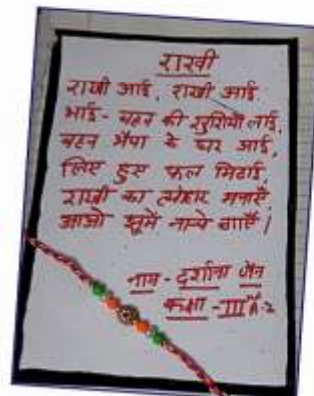 राखी
राखी आई, राखी आई
भाई-बहन की खुशियाँ लाई,
बहन भैया के घर आई,
लिए हुए फल मिठाई,
राखी का त्योहार मनाएँ,
आओ झूमें नाचे गाएँ।
नाम - दर्शाना जैन
कक्षा - III A-2